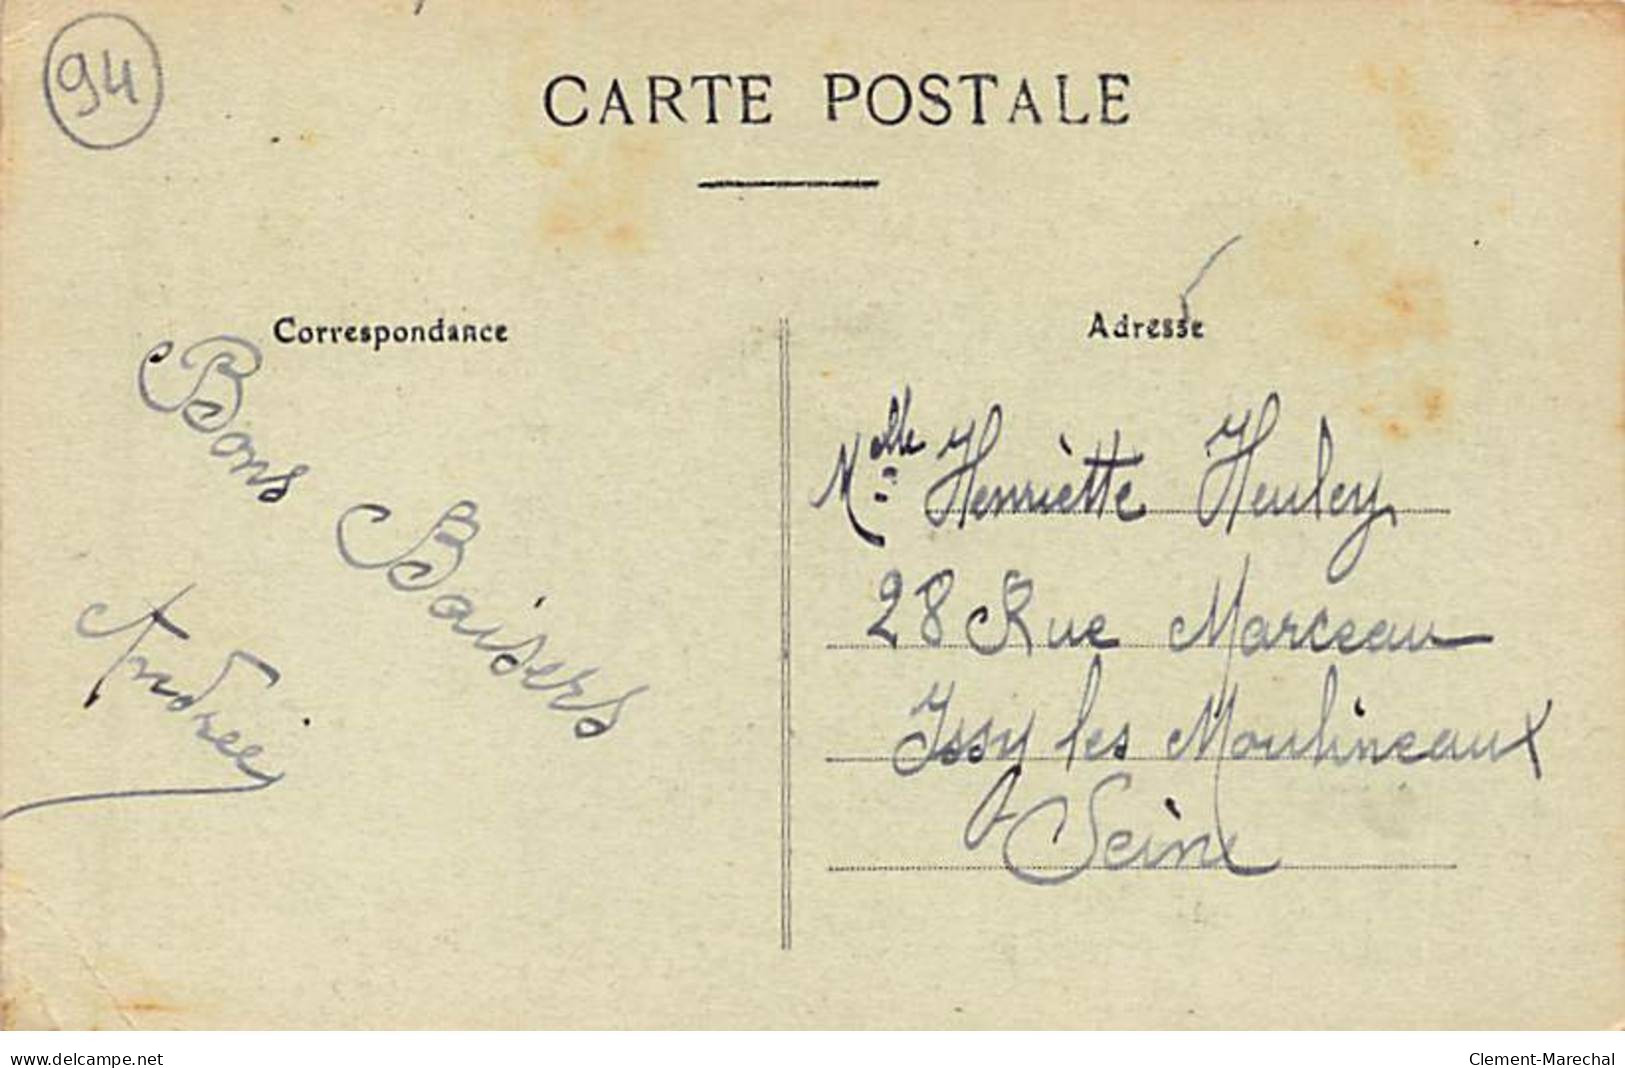 94
CARTE POSTALE
Correspondance
Bons Baisers
Andrée
Adresse
Melle Henriette Heuley
28 Rue Marceau
Issy les Moulineaux
Seine
www.delcampe.net
Clement-Marechal